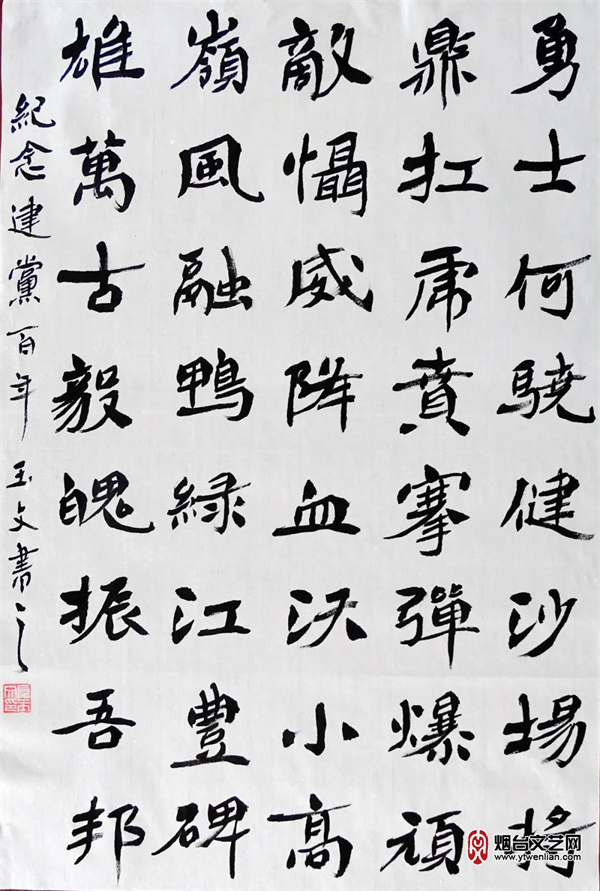 勇士何驍健沙場將
鼎扛虎賁搴彈爆頑
敵懾威陣血沃小高
嶺風融鴨緑江豐碑
雄萬古毅魄振吾邦
紀念建黨百年 玉文書之
烟台文艺网
www.ytwenlian.com